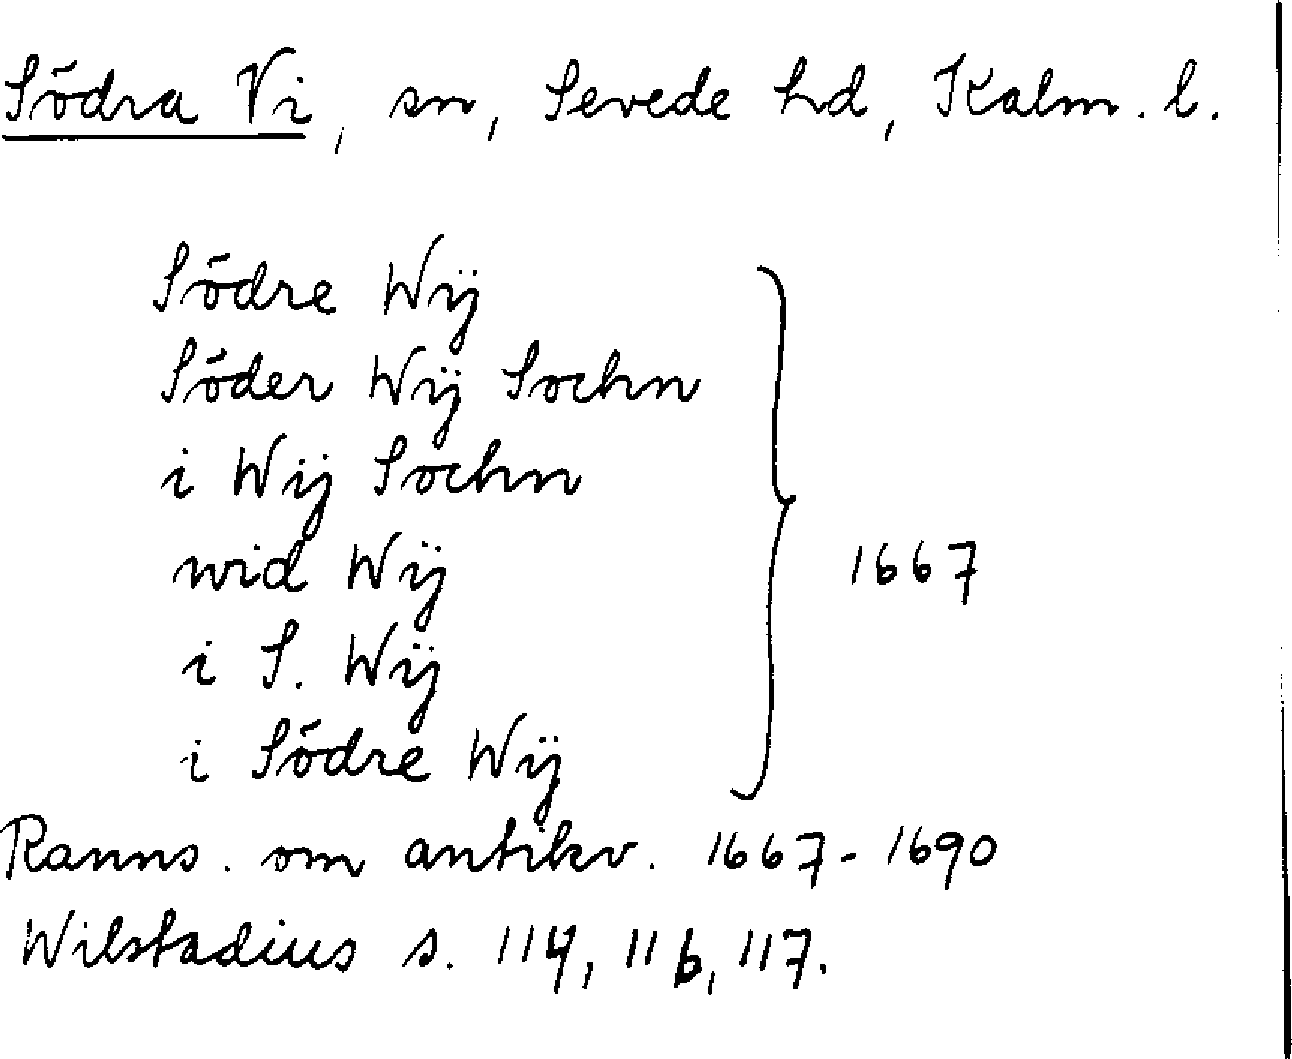 Södra Vi, sn, Sevede hd, Kalm. l.
Södre Wij
Söder Wij Sochn
i Wij Sochn
wid Wij
1667
i S. Wij
i Södre Wij
Ranns. om antikv. 1667-1690
Wilstadius s. 114, 116, 117.